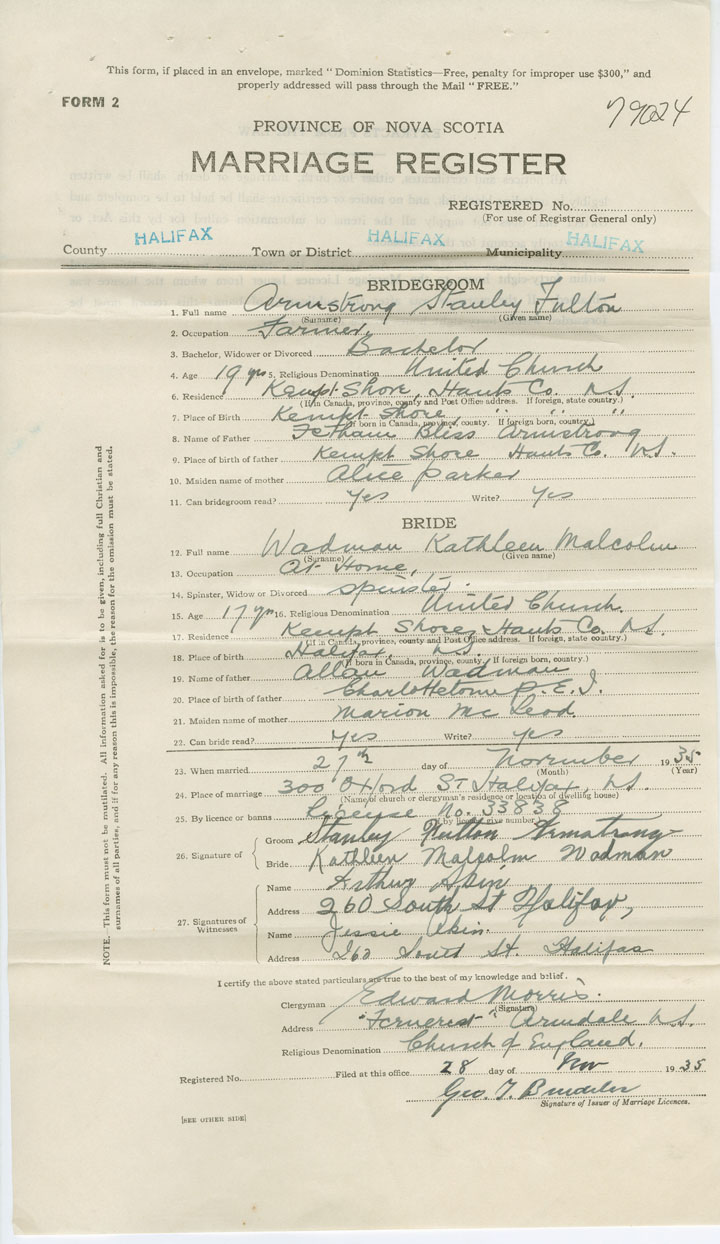 This form, if placed in an envelope, marked "Dominion Statistics—Free, penalty for improper use $300," and
properly addressed will pass through the Mail "FREE."
FORM 2
79024
PROVINCE OF NOVA SCOTIA
MARRIAGE REGISTER
REGISTERED No.
(For use of Registrar General only)
County HALIFAX Town or District HALIFAX Municipality HALIFAX
BRIDEGROOM
1. Full name Armstrong Stanley Fulton
(Surname) (Given name)
2. Occupation Farmer,
3. Bachelor, Widower or Divorced Bachelor
4. Age 19 yrs 5. Religious Denomination United Church
6. Residence Kempt Shore, Hants Co. N.S.
(If in Canada, province, county and Post Office address. If foreign, state country.)
7. Place of Birth Kempt Shore " " "
(If born in Canada, province, county. If foreign born, country.)
8. Name of Father Bliss Armstrong
9. Place of birth of father Kempt Shore Hants Co. N.S.
10. Maiden name of mother Alice Parker
11. Can bridegroom read? Yes Write? Yes
BRIDE
12. Full name Wadman Kathleen Malcolm
(Surname) (Given name)
13. Occupation At Home,
14. Spinster, Widow or Divorced Spinster.
15. Age 17 yrs 16. Religious Denomination United Church.
17. Residence Kempt Shore, Hants Co. N.S.
(If in Canada, province, county and Post Office address. If foreign, state country.)
18. Place of birth Halifax, N.S.
(If born in Canada, province, county. If foreign born, country.)
19. Name of father Allan Wadman
20. Place of birth of father Charlottetown P.E.I.
21. Maiden name of mother Marion McLeod.
22. Can bride read? Yes Write? yes
23. When married 27th day of November 1935
(Month) (Year)
24. Place of marriage 300 Oxford St Halifax, N.S.
(Name of church or clergyman's residence or location of dwelling house)
25. By licence or banns License No. 33838
(If by licence give number)
26. Signature of
Groom Stanley Fulton Armstrong
Bride Kathleen Malcolm Wadman
27. Signatures of Witnesses
Name Arthur Akin
Address 260 South St Halifax,
Name Jessie Akin.
Address 260 South St. Halifax
I certify the above stated particulars are true to the best of my knowledge and belief.
Clergyman Edward Morris.
(Signature)
Address "Ferncrest" Armdale N.S.
Religious Denomination Church of England.
Registered No. Filed at this office 28 day of Nov 1935
Geo. T.
Signature of Issuer of Marriage Licences.
[SEE OTHER SIDE]
NOTE. This form must not be mutilated. All information asked for is to be given, including full Christian and
surnames of all parties, and if for any reason this is impossible, the reason for the omission must be stated.